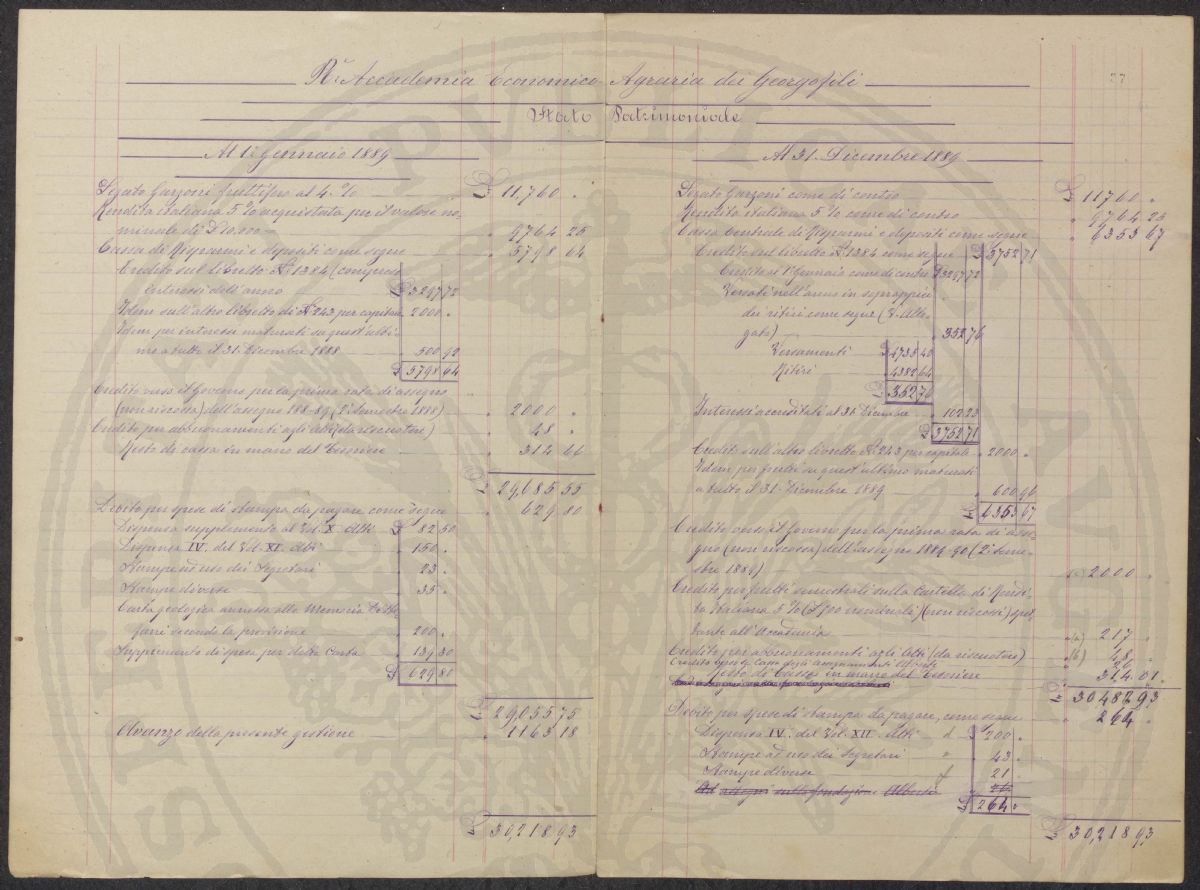 R.ª Accademia Economico Agraria dei Georgofili
37
Stato Patrimoniale
Al 1º Gennaio 1889
Legato Garzoni fruttifero al 4.% £ 11,760 "
Rendita italiana 5% acquistata per il valore no-
minale di £10.000 " 9764 25
Cassa di Risparmi e depositi come segue " 5798 64
Credito sul libretto Nº 1384 (compresi
interessi dell'anno £ 3297 72
Idem sull'altro libretto di Nº 243 per capitale 2000 "
Idem per interessi maturati su quest'ulti-
mo a tutto il 31 Dicembre 1888 500 92
£ 5798 64
Credito verso il Governo per la prima rata di assegno
(non riscossa) dell'assegno 188-89 (2º semestre 1888) " 2000 "
Credito per abbuonamenti agli atti (da riscuotere) " 48 "
Resto di cassa in mano del Tesoriere " 314 66
£ 29,685 55
Debito per spese di stampa da pagare come segue " 629 80
Dispensa supplemento al Vol. X Atti £ 82 50
Dispensa IV. del Vol. XI. Atti " 150 "
Stampe ad uso dei Segretari " 23 "
Stampe diverse " 35 "
Carta geologica annessa alla Memoria
secondo la previsione " 200 "
Supplemento di spesa per detta Carta " 139 30
£ 629 80
£ 29,055 75
Avanzo della presente gestione " 1163 18
£ 30,218 93
Al 31. Dicembre 1889
Legato Garzoni come di contro £ 11760 "
Rendita italiana 5% come di contro " 9764 25
Cassa Centrale di Risparmi e depositi come segue " 6353 67
Credito sul libretto Nº 1384 come segue £ 3752 71
Credito al 1º Gennaio come di contro £ 3297 72
Versati nell'anno in soprappiù
dei ritiri come segue (V. Alle-
gato) " 352 76
Versamenti £ 4735 40
Ritiri " 4382 64
£ 352 76
Interessi accreditati al 31 Dicembre " 102 23
£ 3752 71
Credito sull'altro libretto Nº 243 per capitale " 2000 "
Idem per frutti su quest'ultimo maturati
a tutto il 31 Dicembre 1889 " 600 96
£ 6353 67
Credito verso il Governo per la prima rata di asse-
gno (non riscossa) dell'assegno 1889-90 (2º seme-
stre 1889) " 2000 "
Credito per frutti semestrali sulla Cartella di Rendi-
ta Italiana 5% (£ 500 nominali) (non riscossi) spet-
tante all'Accademia " (a) 217 "
Credito per abbuonamenti agli Atti (da riscuotere) " (b) 48 "
Credito verso la Cassa degli assegnamenti Alberti
Resto di Cassa in mano del Tesoriere 314.01
£ 30482 93
Debito per spese di stampa da pagare, come segue " 264 "
Dispensa IV. del Vol. XII. Atti £ 200 "
Stampe ad uso dei Segretari " 43 "
Stampe diverse " 21 "
Ad assegni sulla fondazione Alberti
£ 264 "
£ 30,218 93